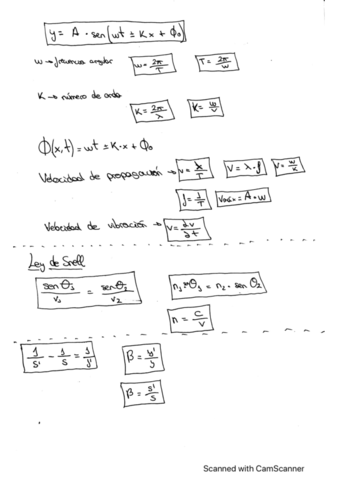 y = A · sen (wt ± Kx + ϕ₀)
w → frecuencia angular w = 2π/T T = 2π/w
K → número de onda K = 2π/λ K = w/v
ϕ(x,t) = wt ± K·x + ϕ₀
Velocidad de propagación → v = λ/T v = λ·f v = w/K
f = 1/T Vmáx = A·w
Velocidad de vibración → v = dy/dt
Ley de Snell
sen θ₁/v₁ = sen θ₂/v₂ n₁ θ₁ = n₂ · sen θ₂
n = c/v
1/s' - 1/s = 1/f' β = y'/y
β = s'/s
Scanned with CamScanner